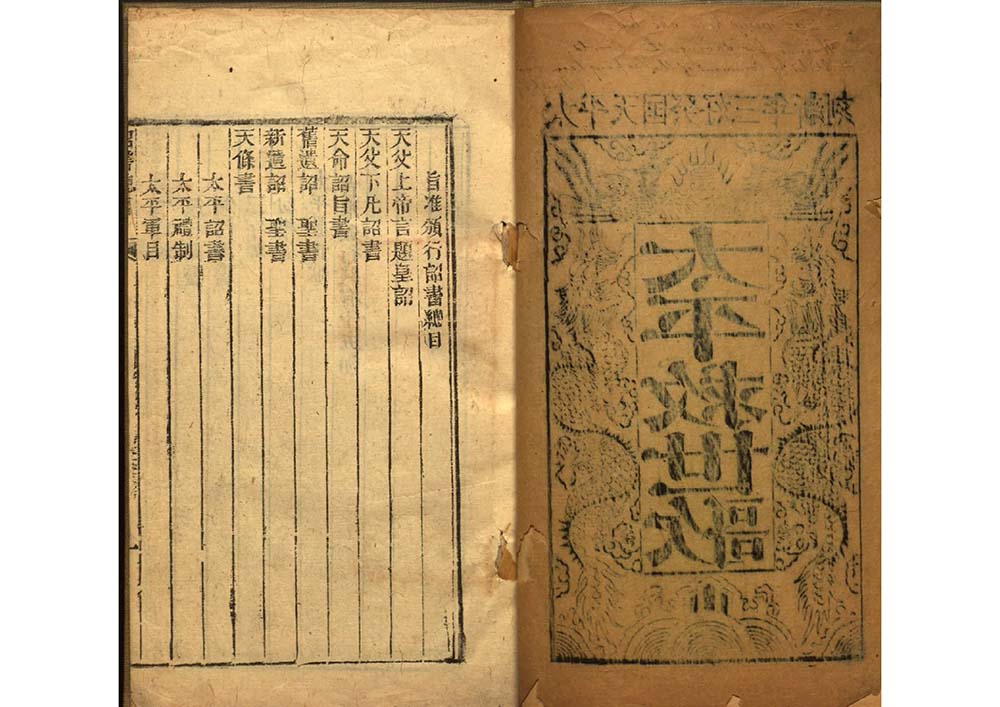 太平天囯癸好三年新刻
太平救世歌
旨准頒行詔書總目
天父上帝言題皇詔
天父下凡詔書
天命詔旨書
舊遺詔 聖書
新遺詔 聖書
天條書
太平詔書
太平禮制
太平軍目